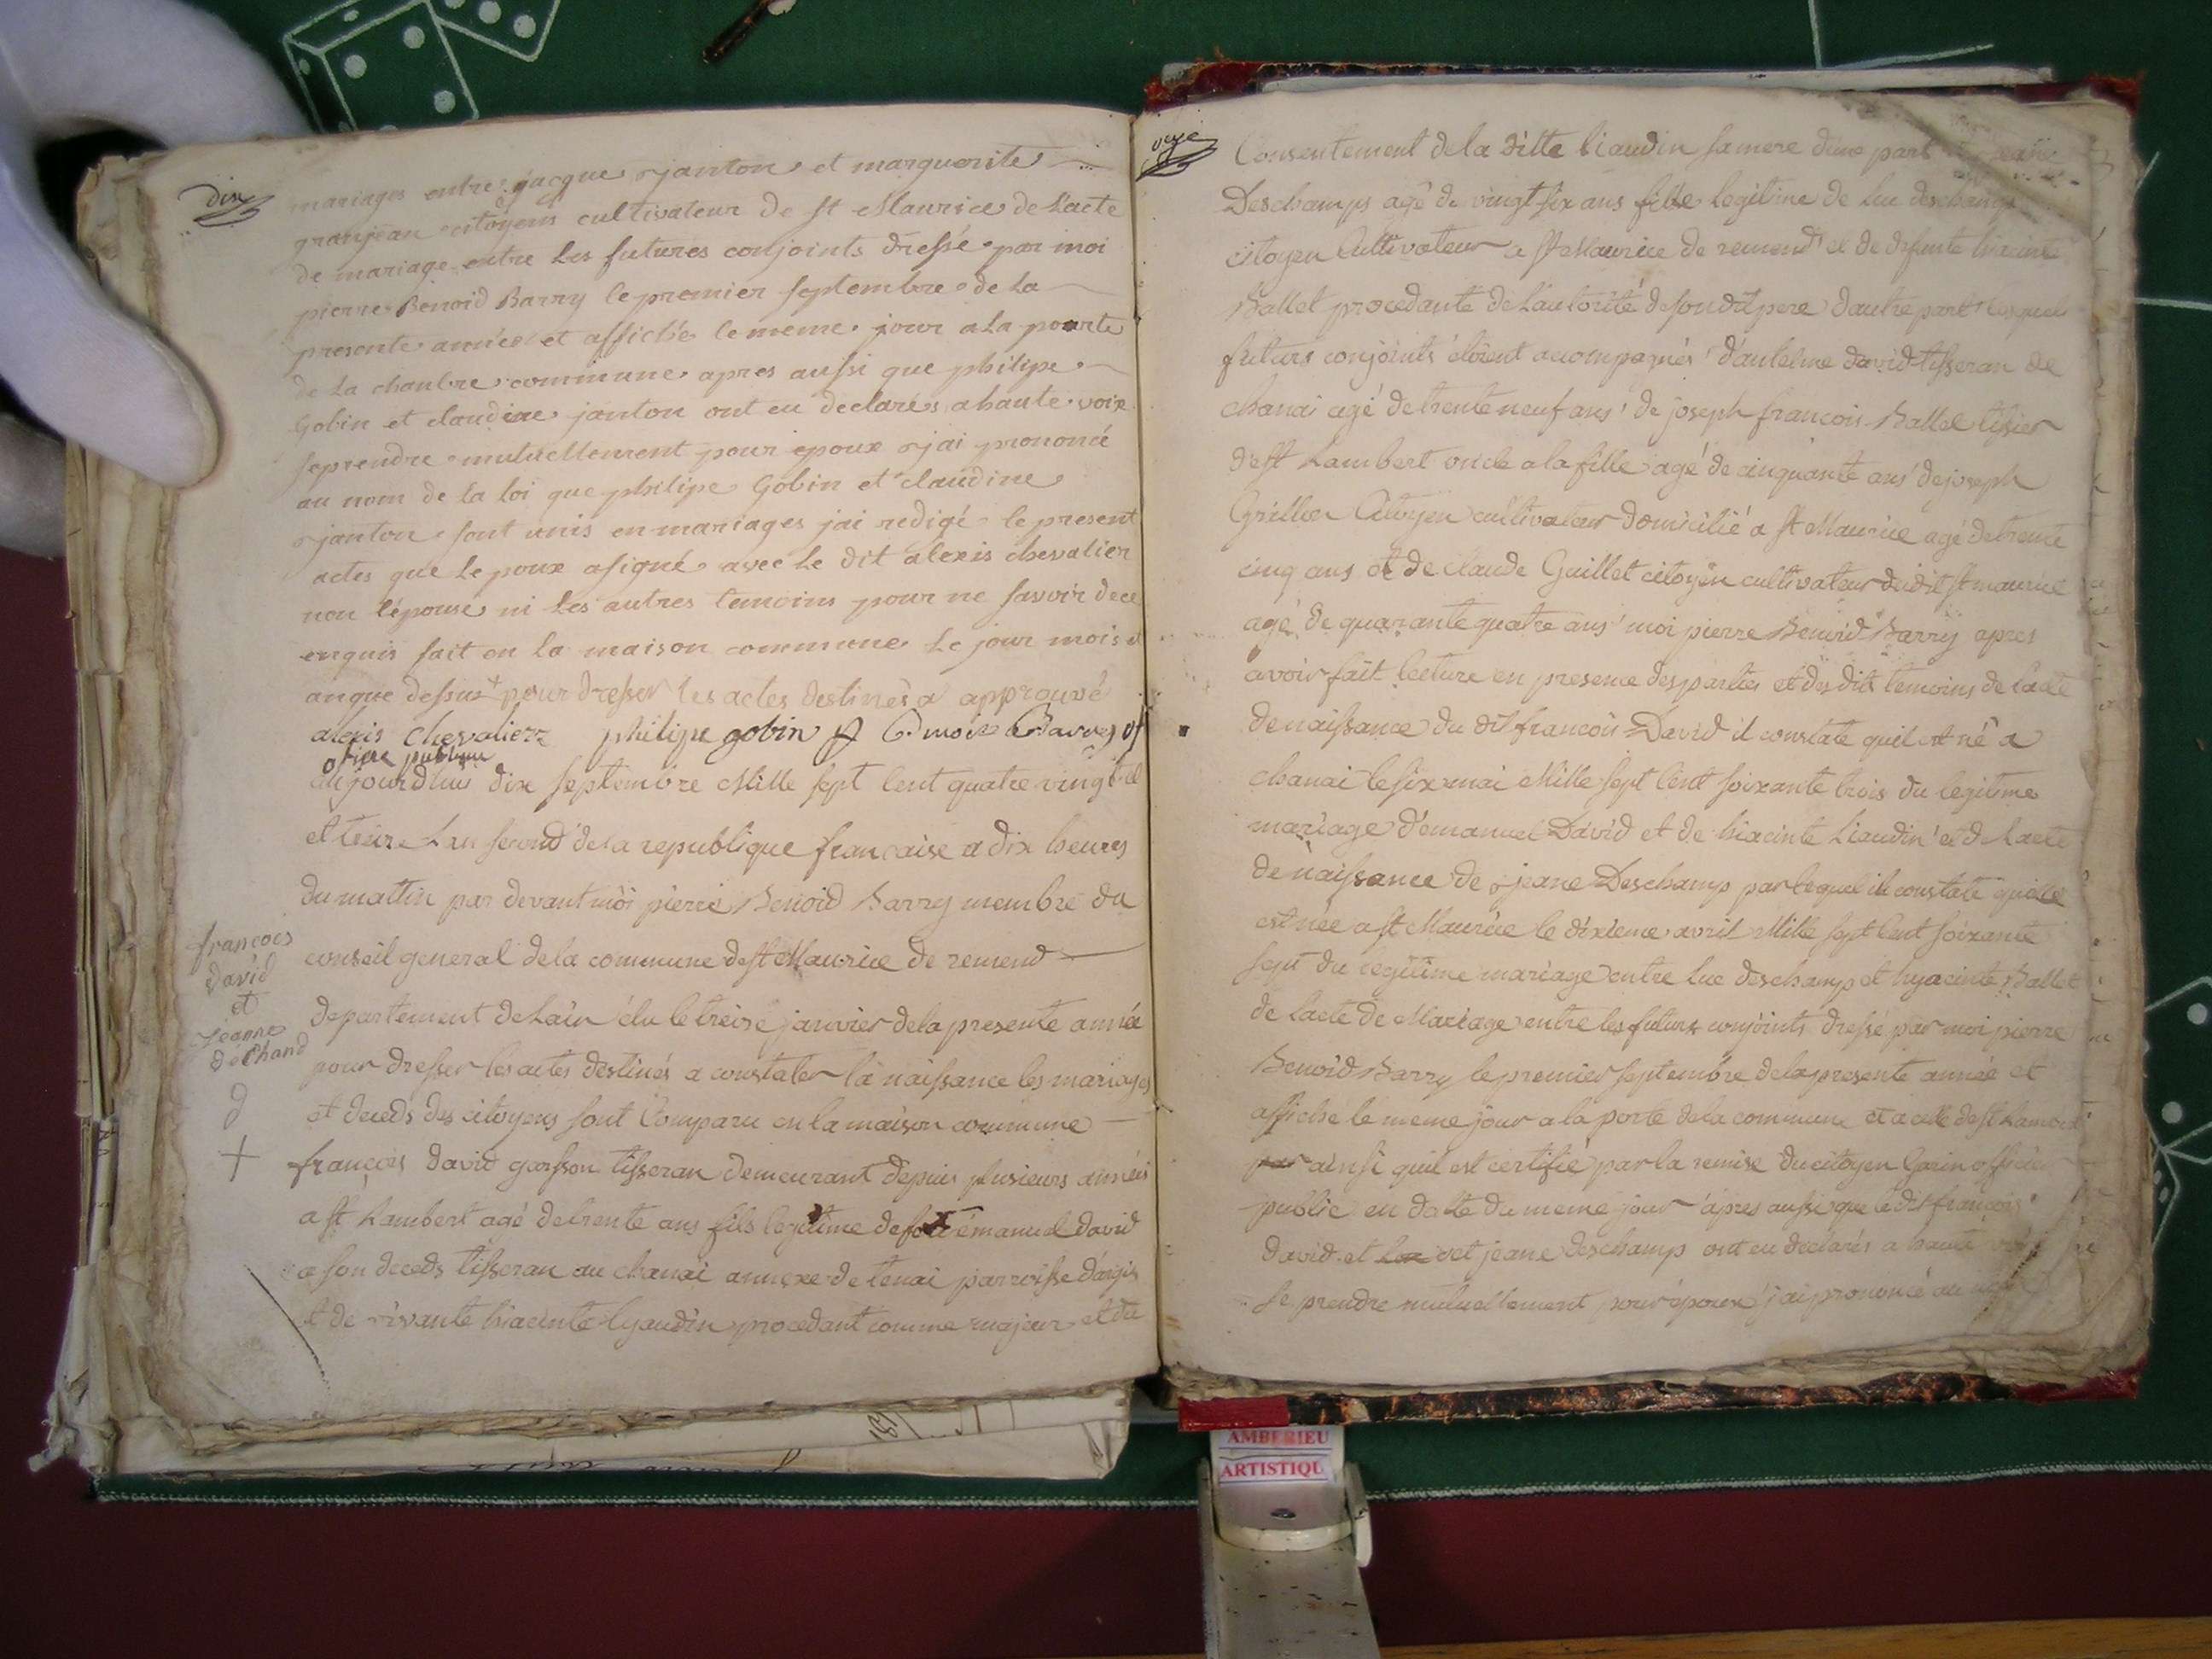 dix
mariages entre jacque janton et marguerite
granjean citoyens cultivateur de st Maurice de Lacte
de mariage entre les futures conjoints dressé par moi
pierre Benoid Barry le premier septembre de la
presente année et affiché le meme jour a la pourte
de la chanbre commune apres aussi que philipe
Gobin et claudine janton ont eu declarés a haute voix
se prendre mutuellement pour epoux jai prononcé
au nom de la loi que philipe Gobin et claudine
janton sont unis en mariages jai redigé le present
actes que lepoux a signé avec le dit alexis chevalier
non lépouse ni les autres temoins pour ne savoir de ce
enquis fait en la maison commune le jour mois et
an que dessus + pour dresser les actes destinés a approuvé
alexis chevalier philipe gobin
publique
aujourdhui dix septembre Mille sept cent quatre vingt
et treize Lan second de la republique francaise a dix heures
du mattin par devant moi pierre Benoid Barry membre du
conseil general de la commune de st Maurice de remend
departement de Lain élu le treise janvier de la presente année
pour dresser les actes destinés a constater la naissance les mariages
et deceds des citoyens sont Comparu en la maison commune
francois david garsson tisseran demeurant depuis plusieurs années
a st Lambert agé de trente ans fils legitime de émanuel david
a son deceds tisseran au chanai annexe de tenai parroisse dargis
et de vivante hiacinte lyaudin procedant comme majeur et du
francois
david
et
jeanne
déchand
d
+
Consentement de la ditte liaudin sa mere dune part
Deschamps agé de vingt six ans fille legitime de luc deschamps
citoyen Cultivateur a st Maurice de remend et de defunte hiacinte
Ballet procedante de Lautorité de son dit pere dautre part lesquels
futurs conjoints étoient accompagnés dantelme david tisseran de
chanai agé de trente neuf ans de joseph francois Ballet tissier
de st Lambert oncle a la fille agé de cinquante ans de joseph
Grillier Citoyen cultivateur domicilié a st Maurice agé de trente
cinq ans et de claude Guillet citoyen cultivateur du dit st maurice
agé de quarante quatre ans moi pierre Benoid Barry apres
avoir fait lecture en presence des parties et des dits temoins de lacte
de naissance du dit francois David il constate quil est né a
chanai le six mai Mille sept cent soixante trois du legitime
mariage démanuel David et de hiacinte Liaudin et de lacte
de naissance de jeane Deschamp par lequel il constate quelle
est née a st Maurice le dixieme avril Mille sept cent soixante
sept du legitime mariage entre luc deschamp et hyacinte Ballet
de lacte de Mariage entre les futurs conjoints dressé par moi pierre
Benoid Barry le premier septembre de la presente année et
affiché le meme jour a la porte de la commune et a celle de st Lambert
par ainsi quil est certifié par la remise du citoyen Garin officier
public en datte du meme jour apres aussi que le dit francois
david et jeane deschamp ont eu declarés a haute
se prendre mutuellement pour époux jai prononcé au
AMBERIEU
ARTISTIQU